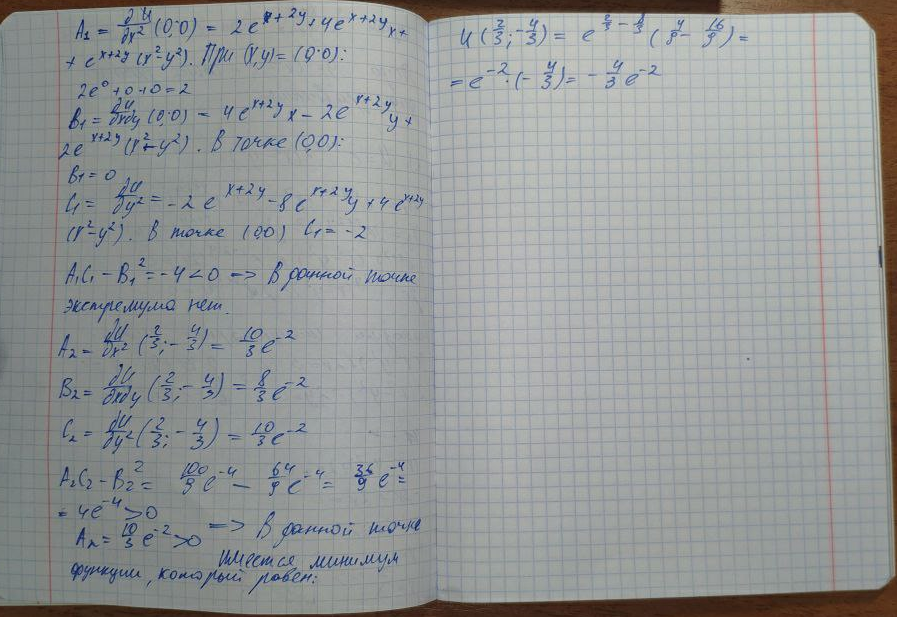 A₁ = ∂U/∂x² (0;0) = 2e^(x+2y) + 4e^(x+2y)x +
+ e^(x+2y) (x²-y²). При (x,y) = (0;0):
2e⁰ + 0 + 0 = 2
B₁ = ∂U/∂x∂y (0;0) = 4e^(x+2y)x - 2e^(x+2y)y +
2e^(x+2y) (x²-y²). В точке (0,0):
B₁ = 0
C₁ = ∂U/∂y² = -2e^(x+2y) - 8e^(x+2y)y + 4e^(x+2y)
(x²-y²). В точке (0,0) C₁ = -2
A₁C₁ - B₁² = -4 < 0 => В данной точке
экстремума нет.
A₂ = ∂U/∂x² (2/3; -4/3) = 10/3 e⁻²
B₂ = ∂U/∂x∂y (2/3; -4/3) = 8/3 e⁻²
C₂ = ∂U/∂y² (2/3; -4/3) = 10/3 e⁻²
A₂C₂ - B₂² = 100/9 e⁻⁴ - 64/9 e⁻⁴ = 36/9 e⁻⁴ =
= 4e⁻⁴ > 0
A₂ = 10/3 e⁻² > 0 => В данной точке
имеется минимум
функции, который равен:
U (2/3; -4/3) = e^(2/3 - 8/3) (4/9 - 16/9) =
= e⁻² · (-4/3) = -4/3 e⁻²